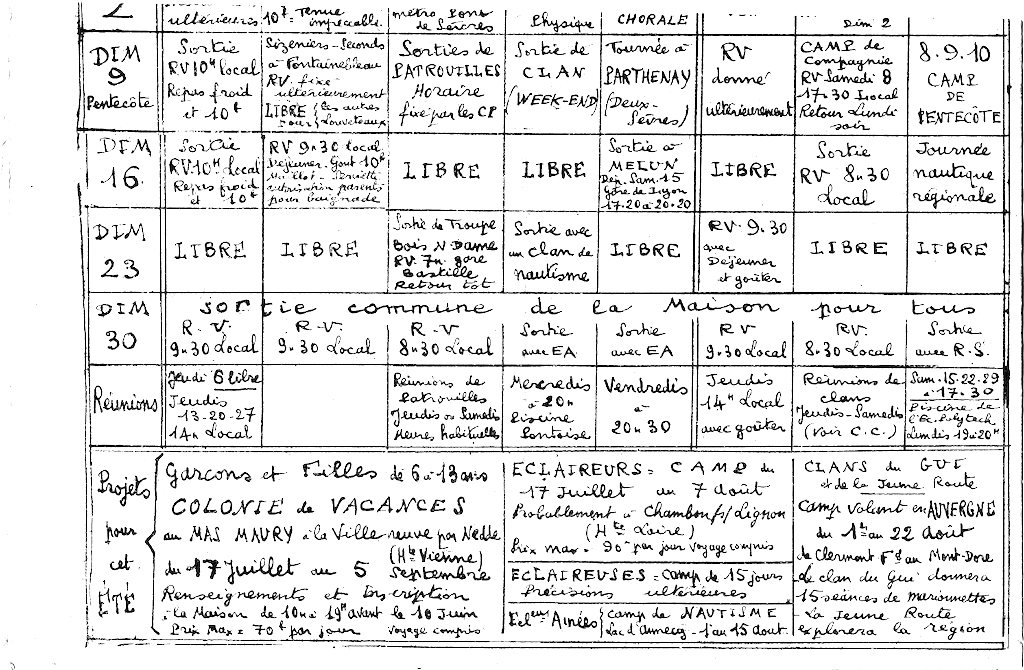 2
ultérieurs
10f = Tenue
impeccable
métro Pont
de Sèvres
Physique
CHORALE
Dim 2
DIM
9
Pentecôte
Sortie
RV 10H local
Repas froid
et 10f
Sizeniers-Seconds
à Fontainebleau
RV. fixé
ultérieurement
LIBRE (les autres
pour (Louveteaux
Sorties de
PATROUILLES
Horaire
fixé par les CP
Sortie de
CLAN
(WEEK-END)
Tournée à
PARTHENAY
(Deux-
Sèvres)
RV
donné
ultérieurement
CAMP de
Compagnie
RV Samedi 8
17.30 Local
Retour Lundi
soir
8.9.10
CAMP
DE
PENTECÔTE
DIM
16
Sortie
RV 10H local
Repas froid
et 10f
RV 9h30 local
Déjeuner. Gout 10f
Maillot - Serviette
autorisation parents
pour baignade
LIBRE
LIBRE
Sortie à
MELUN
Dép. Sam. 15
Gare de Lyon
17.20 à 20.20
LIBRE
Sortie
RV 8h30
Local
Journée
nautique
régionale
DIM
23
LIBRE
LIBRE
Sortie de Troupe
Bois N. Dame
RV. 7h. gare
Bastille
Retour tôt
Sortie avec
un clan de
nautisme
LIBRE
RV. 9.30
avec
Déjeuner
et goûter
LIBRE
LIBRE
DIM
30
sortie commune de la Maison pour tous
R.V.
9h30 Local
R.V.
9h30 Local
R.V
8h30 Local
Sortie
avec EA
Sortie
avec EA
RV
9h30 Local
RV.
8h30 Local
Sortie
avec R.S.
Réunions
Jeudi 6 libre
Jeudis
13-20-27
14h Local
Réunions de
Patrouilles
Jeudis ou Samedis
Heures habituelles
Mercredis
à 20h
Piscine
Pontoise
Vendredis
à
20h30
Jeudis
14H Local
avec goûter
Réunions de
clans
Jeudis-Samedis
(Voir C.C.)
Sam. 15-22-29
à 17.30
Piscine de
l'Ec. Polytech
Lundis 19 à 20H
Projets
pour
cet
ÉTÉ
Garçons et Filles de 6 à 13 ans
COLONIE de VACANCES
au MAS MAURY à la Villeneuve par Nedde
(Hte Vienne)
du 17 Juillet au 5 Septembre
Renseignements et Inscription
à la Maison de 10H à 19H avant le 10 Juin
Prix Max = 70f par jour voyage compris
ECLAIREURS = CAMP du
17 Juillet au 7 août
Probablement à Chambon s/Lignon
(Hte Loire)
Prix max = 90f par jour voyage compris
ECLAIREUSES = camp de 15 jours
Précisions ultérieures
Ecleuses Aînées
(camp de NAUTISME
Lac d'annecy - 1 au 15 août
CLANS du GUI
et de la Jeune Route
Camp Volant en AUVERGNE
du 1er au 22 Août
de Clermont Fd au Mont-Dore
Le clan du Gui donnera
15 séances de marionnettes
La Jeune Route
explorera la région